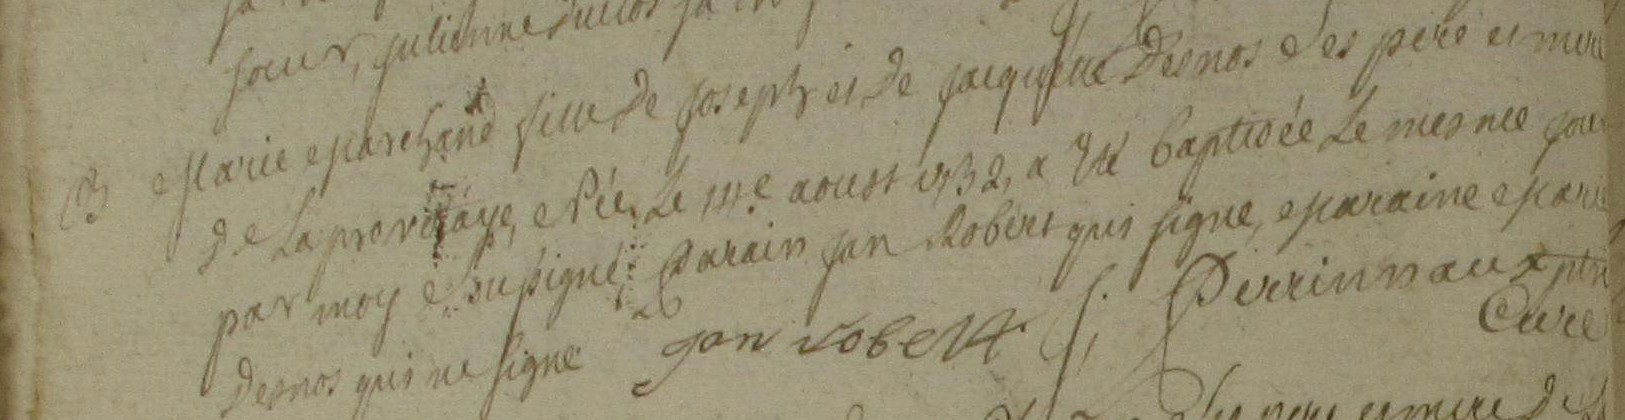 soeur, julienne duclos
B Marie Marchand fille de joseph et de jacquine Desnos ses pere et mere
de La provotaye, Née Le 14e aoust 1732, a Eté baptisée Le mesme jour
par moy Soussigné; Parain jan Robert qui signe, Maraine Marie
Desnos qui ne signe jan robert J: Perrinnaux ptre
Curé